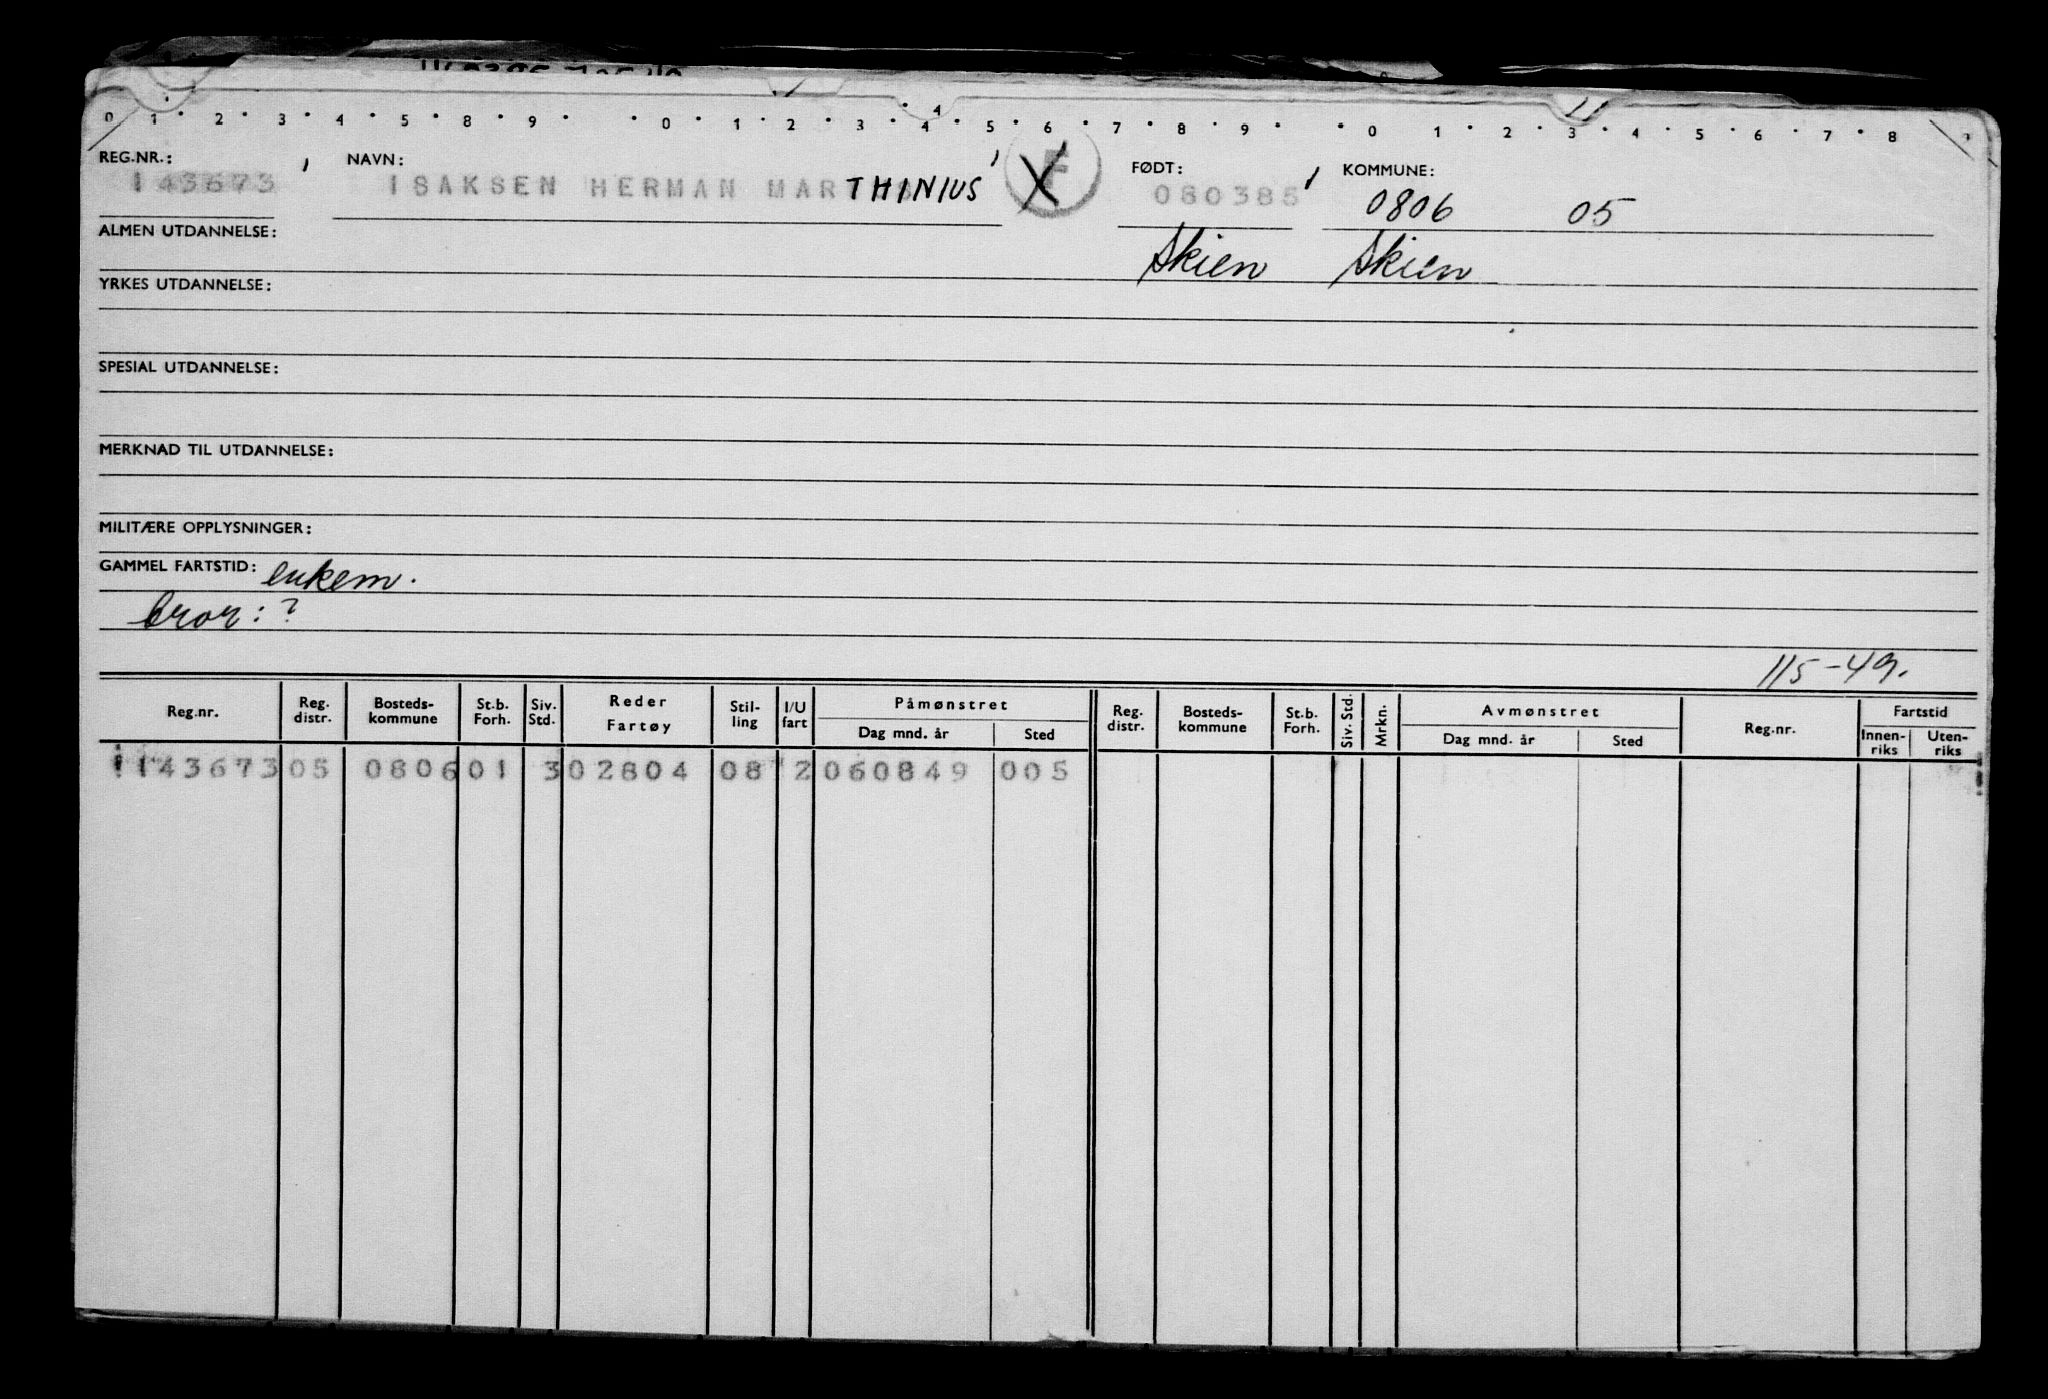 0 1 2 3 4 5 8 9 0 1 2 3 4 5 6 7 8 9 0 1 2 3 4 5 6 7 8
4
REG.NR.: NAVN: FØDT: KOMMUNE:
143673 ISAKSEN HERMAN MARTHINIUS F 080385 0806 05
ALMEN UTDANNELSE: Skien Skien
YRKES UTDANNELSE:
SPESIAL UTDANNELSE:
MERKNAD TIL UTDANNELSE:
MILITÆRE OPPLYSNINGER:
GAMMEL FARTSTID: enkem.
bror: ?
115-49.
Reg.nr. Reg. distr. Bosteds- kommune St.b. Forh. Siv. Std. Reder Fartøy Stil- ling I/U fart Påmønstret Dag mnd. år Sted Reg. distr. Bosteds- kommune St.b. Forh. Siv. Std. Mrkn. Avmønstret Dag mnd. år Sted Reg.nr. Fartstid Innen- riks Uten- riks
143673 05 0806 01 3 02804 08 2 060849 005